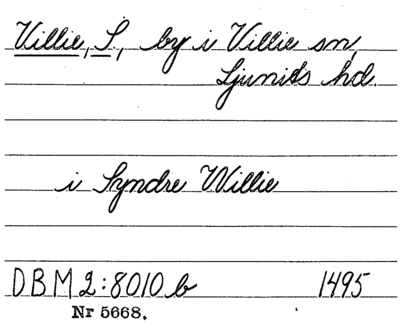 Villie, S., by i Villie sn,
Ljunits hd.
i Syndre Willie
DBM 2:8010 b 1495
Nr 5668.